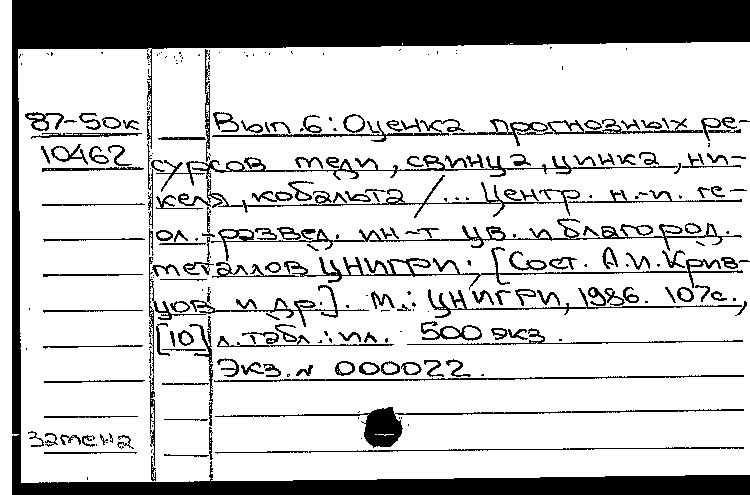 87-50к
10462
Вып.6: Оценка прогнозных ре-
сурсов меди, свинца, цинка, ни-
келя, кобальта / ... Центр. н.-и. ге-
ол.-развед. ин-т цв. и благород.
металлов ЦНИГРИ; [Сост. А.И. Крив-
цов и др.]. М.: ЦНИГРИ, 1986. 107с.,
[10] л.табл.: ил. 500 экз.
Экз.№ 000022.
Замена